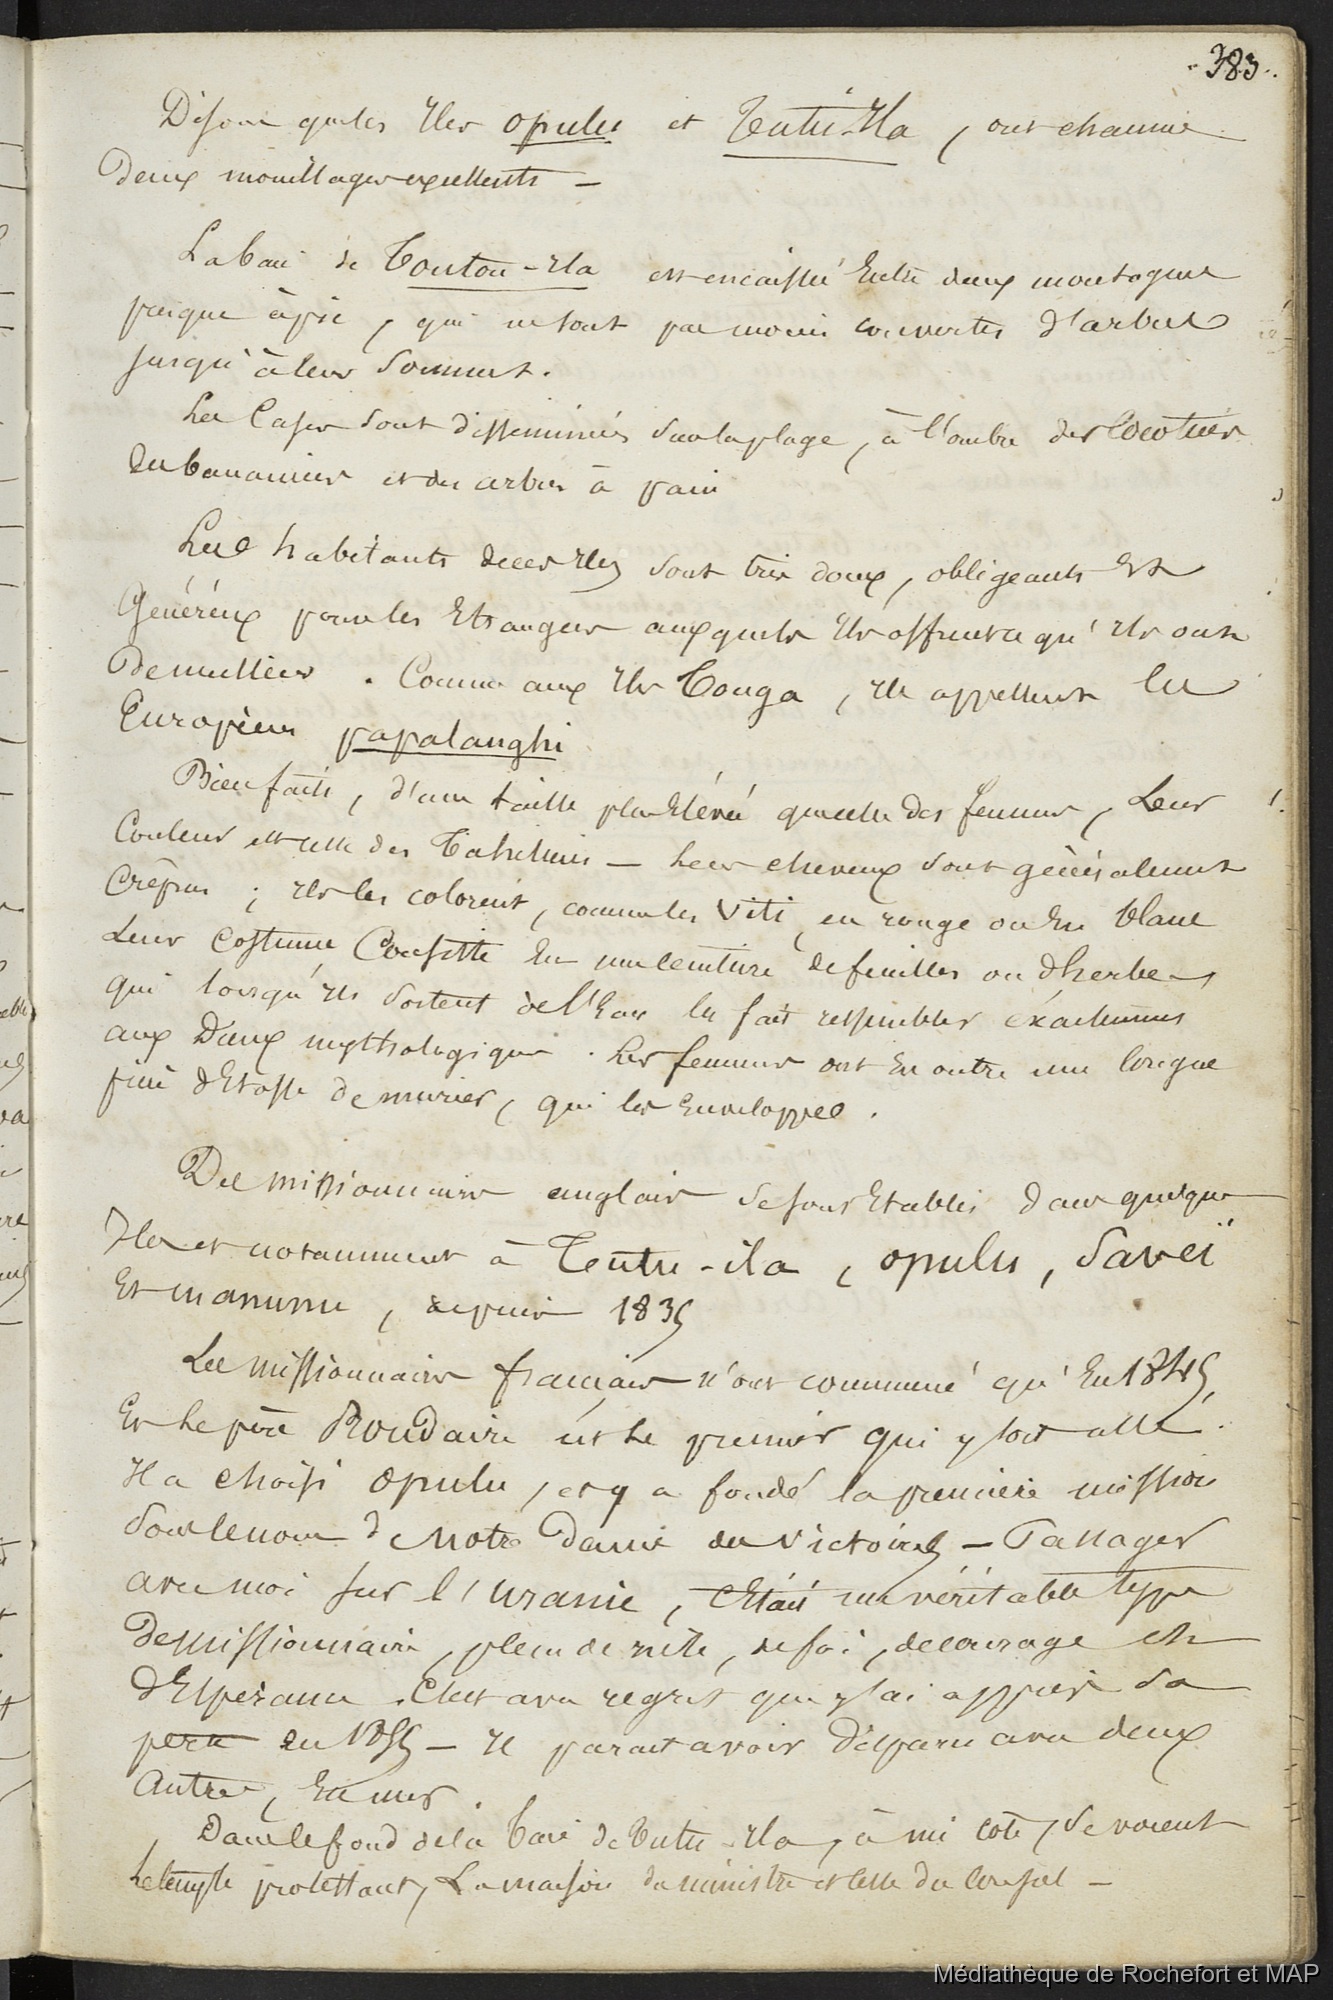 383
Disons que les Iles opulu et Tutu-Ila, ont chacune
Deux mouillages excellents —
La baie de Toutou-Ila est encaissée Entre deux montagnes
presque à pic, qui ne sont pas moins couvertes d'arbres
jusqu'à leur Sommet.
Les Cases sont disséminées sur la plage, à l'ombre des Cocotiers
des bananiers et des arbres à pain
Les habitants de ces Iles sont très doux, obligeants Et
Généreux pour les Etrangers auxquels Ils offrent ce qu'Ils ont
De meilleur. Comme aux Iles Tonga, Ils appellent les
Européens papalanghi
Bien faits, d'une taille plus Elévée que celle des femmes, Leur
Couleur est celle des Tahitiens — Leurs cheveux sont généralement
Crépus; Ils les colorent, comme les Viti, en rouge ou En blanc
Leur Costume Consiste En une ceinture de feuilles ou d'herbes
qui lorsqu'Ils sortent de l'Eau les fait ressembler éxactement
aux Dieux mythologiques. Les femmes ont En outre une longue
pièce d'Etoffe de murier, qui les Enveloppe.
Des missionnaires anglais se sont Etablis dans quelques
Iles et notamment à Teutu-ila, opulu, Saveï
Et manunu, depuis 1835
Les missionnaires français n'ont commencé qu'En 1845,
Et Le père Roudaire est Le premier qui y soit allé.
Il a choisi opulu, et y a fondé la première mission
Sous le nom de Notre Dame des Victoires — Passager
avec moi sur l'Uranie, c'Etait un véritable type
De missionnaire, plein de zèle, de foi, de courage et
d'Espérance. C'est avec regret que j'ai appris sa
perte en 1855 — Il parait avoir disparu avec deux
Autres, En mer.
Dans le fond de la baie de Tutu-Ila, à mi côte, se voient
Le temple protestant, La maison du ministre et celle du Consul —
Médiathèque de Rochefort et MAP